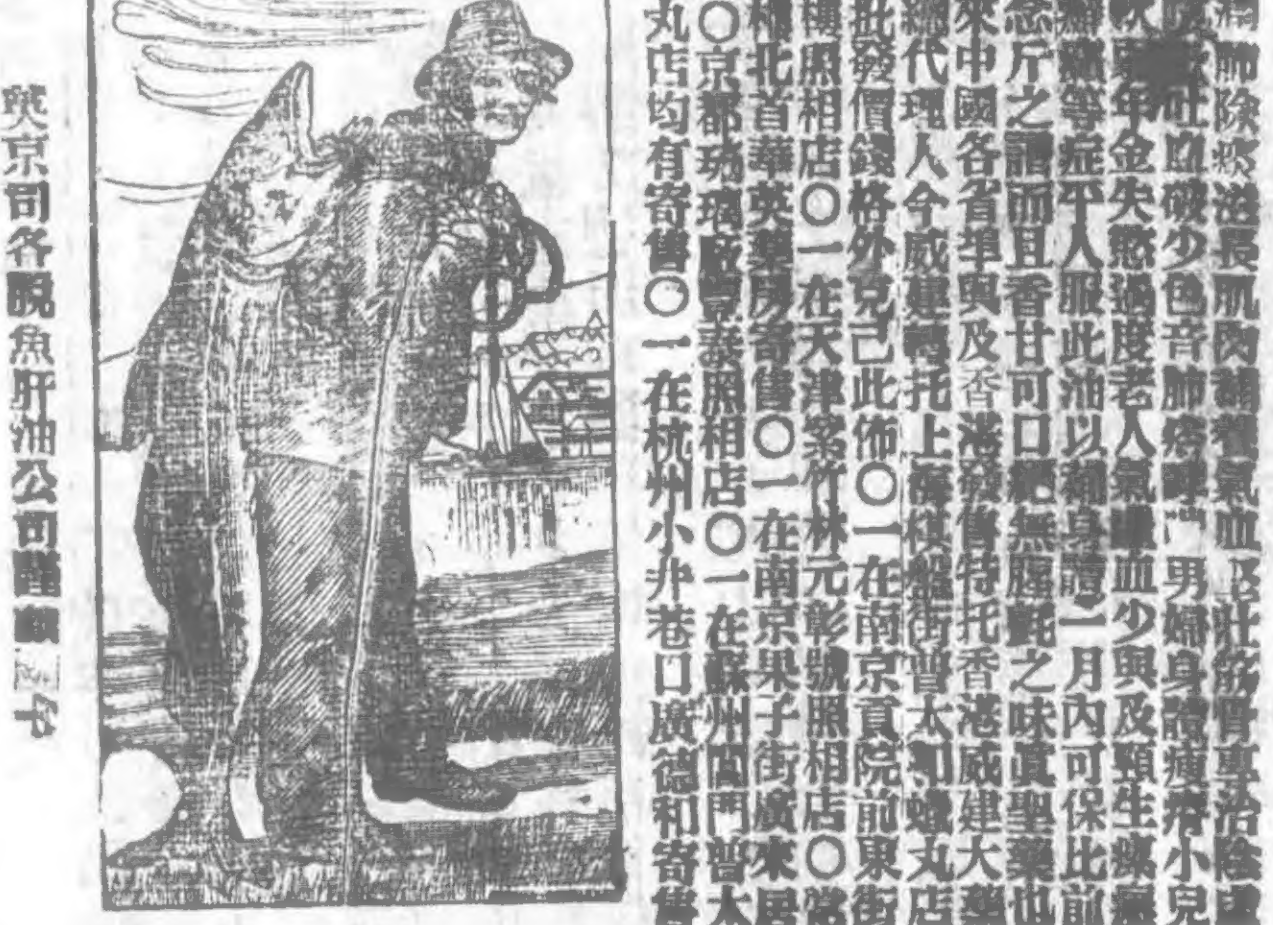 肺除痰滋長肌肉補養氣血堅壯筋骨專治陰虛
吐血破少色音肺癆哮喘男婦身體瘦瘠小兒
年金失慾過度老人氣虛血少與及頸生瘰癧
癱等症平人服此油以補身體一月內可保比前
斤之謂而且香甘可口絕無腥羶之味眞聖藥也
來中國各省埠與及香港發售特托香港威建大藥
總代理人今威建轉托上海棋盤街普太和蠟丸店
批發價錢格外克己此佈〇一在南京貢院前東街
樓照相店〇一在天津紫竹林元彰號照相店〇常
北首華英藥房寄售〇一在南京果子街廣來居
〇京都琉璃廠豐泰照相店〇一在蘇州閶門普太
丸店均有寄售〇一在杭州小井巷口廣德和寄售
英京司各脫魚肝油公司謹